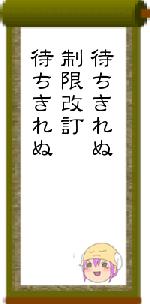 待ちきれぬ
制限改訂
待ちきれぬ